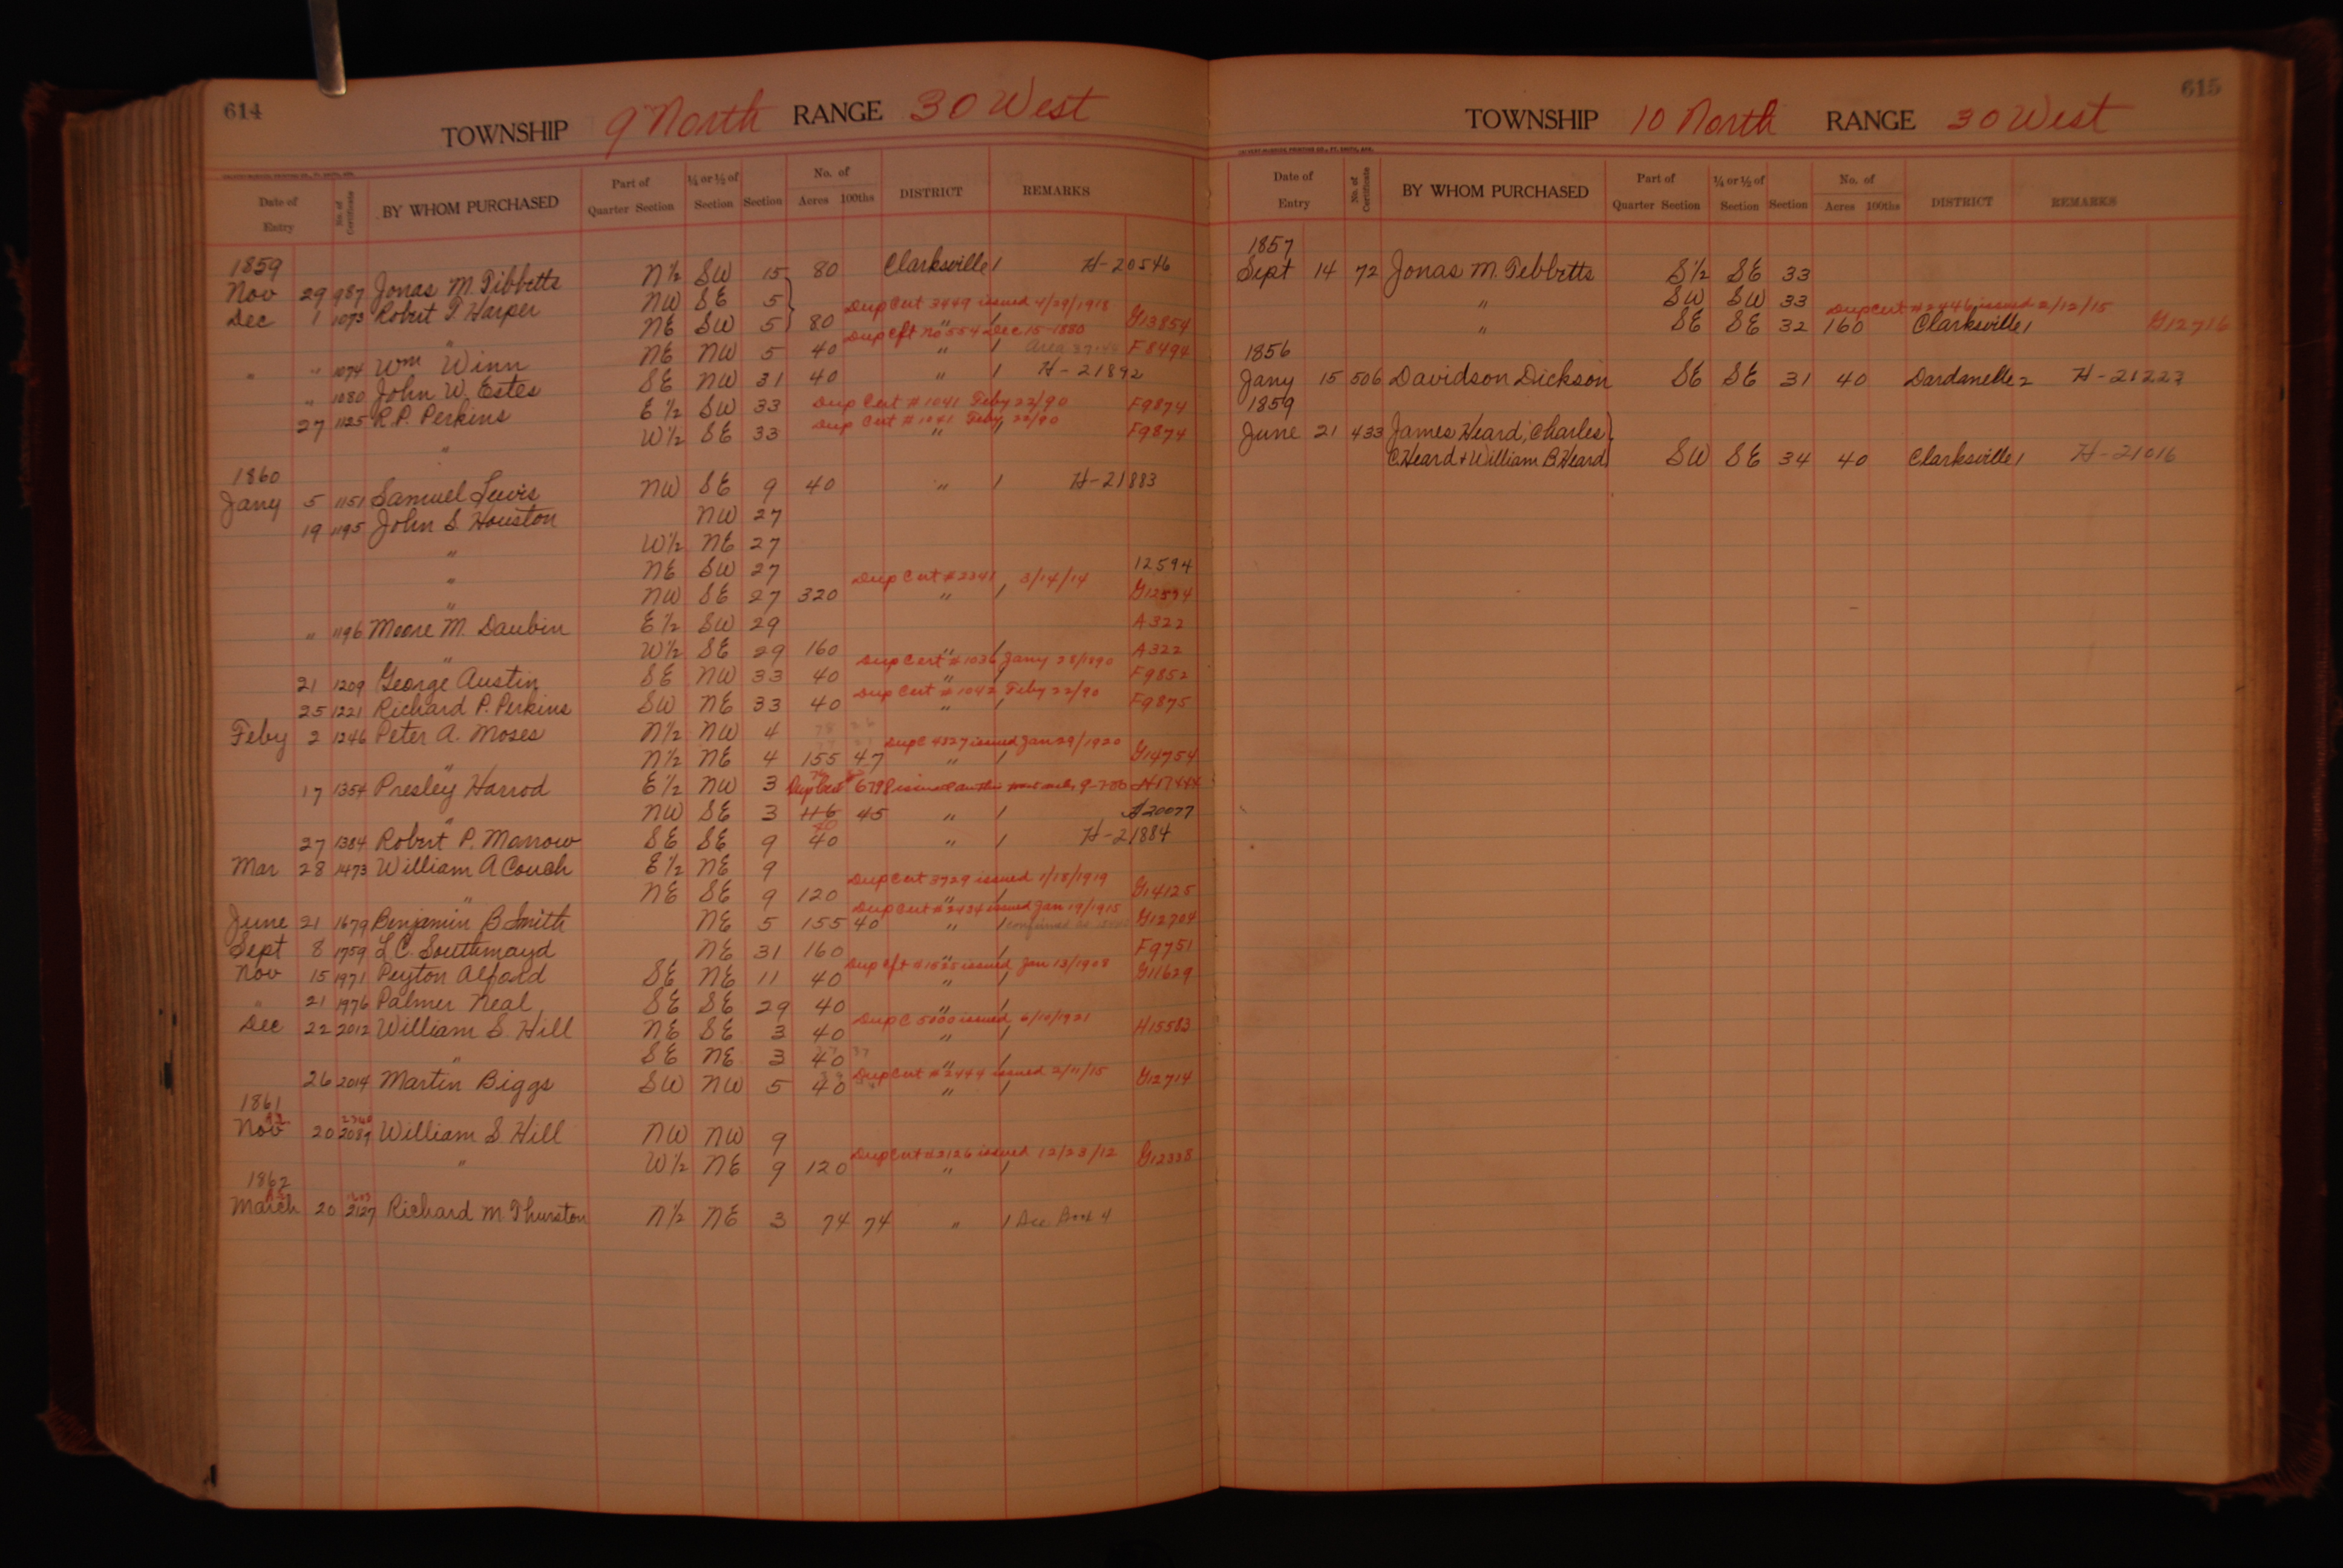 614
TOWNSHIP 9 North RANGE 30 West
Date of Entry No. of Certificate BY WHOM PURCHASED Part of Quarter Section ¼ or ½ of Section Section No. of Acres 100ths DISTRICT REMARKS
1859
Nov 29 987 Jonas M. Tibbetts N½ SW 15 80 Clarksville 1 H-20546
Dec 1 1073 Robert T. Harper NW SE 5
Dup Cert 3449 issued 4/29/1918
" NE SW 5 80 " 1 G13854
Dup Cft No 554 Dec 15-1880
" " 1074 Wm Winn NE NW 5 40 " 1 Area F8494
" 1080 John W. Estes SE NW 31 40 " 1 H-21892
27 1125 R.P. Perkins E½ SW 33 Dup Cert #1041 Feby 22/90 F9874
Dup Cert #1041 Feby 22/90
" W½ SE 33 " 1 F9874
1860
Jany 5 1151 Samuel Lewis NW SE 9 40 " 1 H-21883
19 1195 John S. Houston NW 27
" W½ NE 27
" NE SW 27 12594
Dup Cert #2341 3/14/14
" NW SE 27 320 " 1 G12594
" 1196 Moore M. Daubin E½ SW 29 A322
" W½ SE 29 160 " 1 A322
Dup Cert #1036 Jany 28/1890
21 1209 George Austin SE NW 33 40 " 1 F9852
Dup Cert #1042 Feby 22/90
25 1221 Richard P. Perkins SW NE 33 40 " 1 F9875
Feby 2 1246 Peter A. Moses N½ NW 4
Dup C 4827 issued Jan 29/1920
" N½ NE 4 155 47 " 1 G14754
17 1354 Presley Harrod E½ NW 3 Dup Cert 6798 issued H17444
" NW SE 3 116 45 " 1 H20077
40
27 1384 Robert P. Marrow SE SE 9 40 " 1 H-21884
Mar 28 1473 William A Couch E½ NE 9
Dup Cert 3729 issued 1/18/1919
" NE SE 9 120 " 1 G14125
Dup Cert #2434 issued Jan 19/1915
June 21 1679 Benjamin B Smith NE 5 155 40 " 1 confirmed as G12704
Sept 8 1759 L C. Southmayd NE 31 160 " 1 F9751
Dup Cft #1525 issued Jan 13/1908
Nov 15 1971 Peyton Alford SE NE 11 40 " 1 G11629
" 21 1976 Palmer Neal SE SE 29 40 " 1
Dup C 5000 issued 6/10/1921
Dec 22 2012 William S. Hill NE SE 3 40 " 1 H15583
" SE NE 3 40 37 " 1
Dup Cert #2444 issued 2/11/15
26 2014 Martin Biggs SW NW 5 40 " 1 G12714
1861
Nov 20 2089 William S Hill NW NW 9
Dup Cert #2126 issued 12/23/12
" W½ NE 9 120 " 1 G12338
1862
March 20 2127 Richard M. Thurston N½ NE 3 74 74 " 1 See Book 4
615
TOWNSHIP 10 North RANGE 30 West
Date of Entry No. of Certificate BY WHOM PURCHASED Part of Quarter Section ¼ or ½ of Section Section No. of Acres 100ths DISTRICT REMARKS
1857
Sept 14 72 Jonas M. Tebbetts S½ SE 33
" SW SW 33
Dup Cert #2446 issued 2/12/15
" SE SE 32 160 Clarksville 1 G12716
1856
Jany 15 506 Davidson Dickson SE SE 31 40 Dardanelle 2 H-21223
1859
June 21 433 James Heard, Charles
C. Heard + William B. Heard SW SE 34 40 Clarksville 1 H-21016